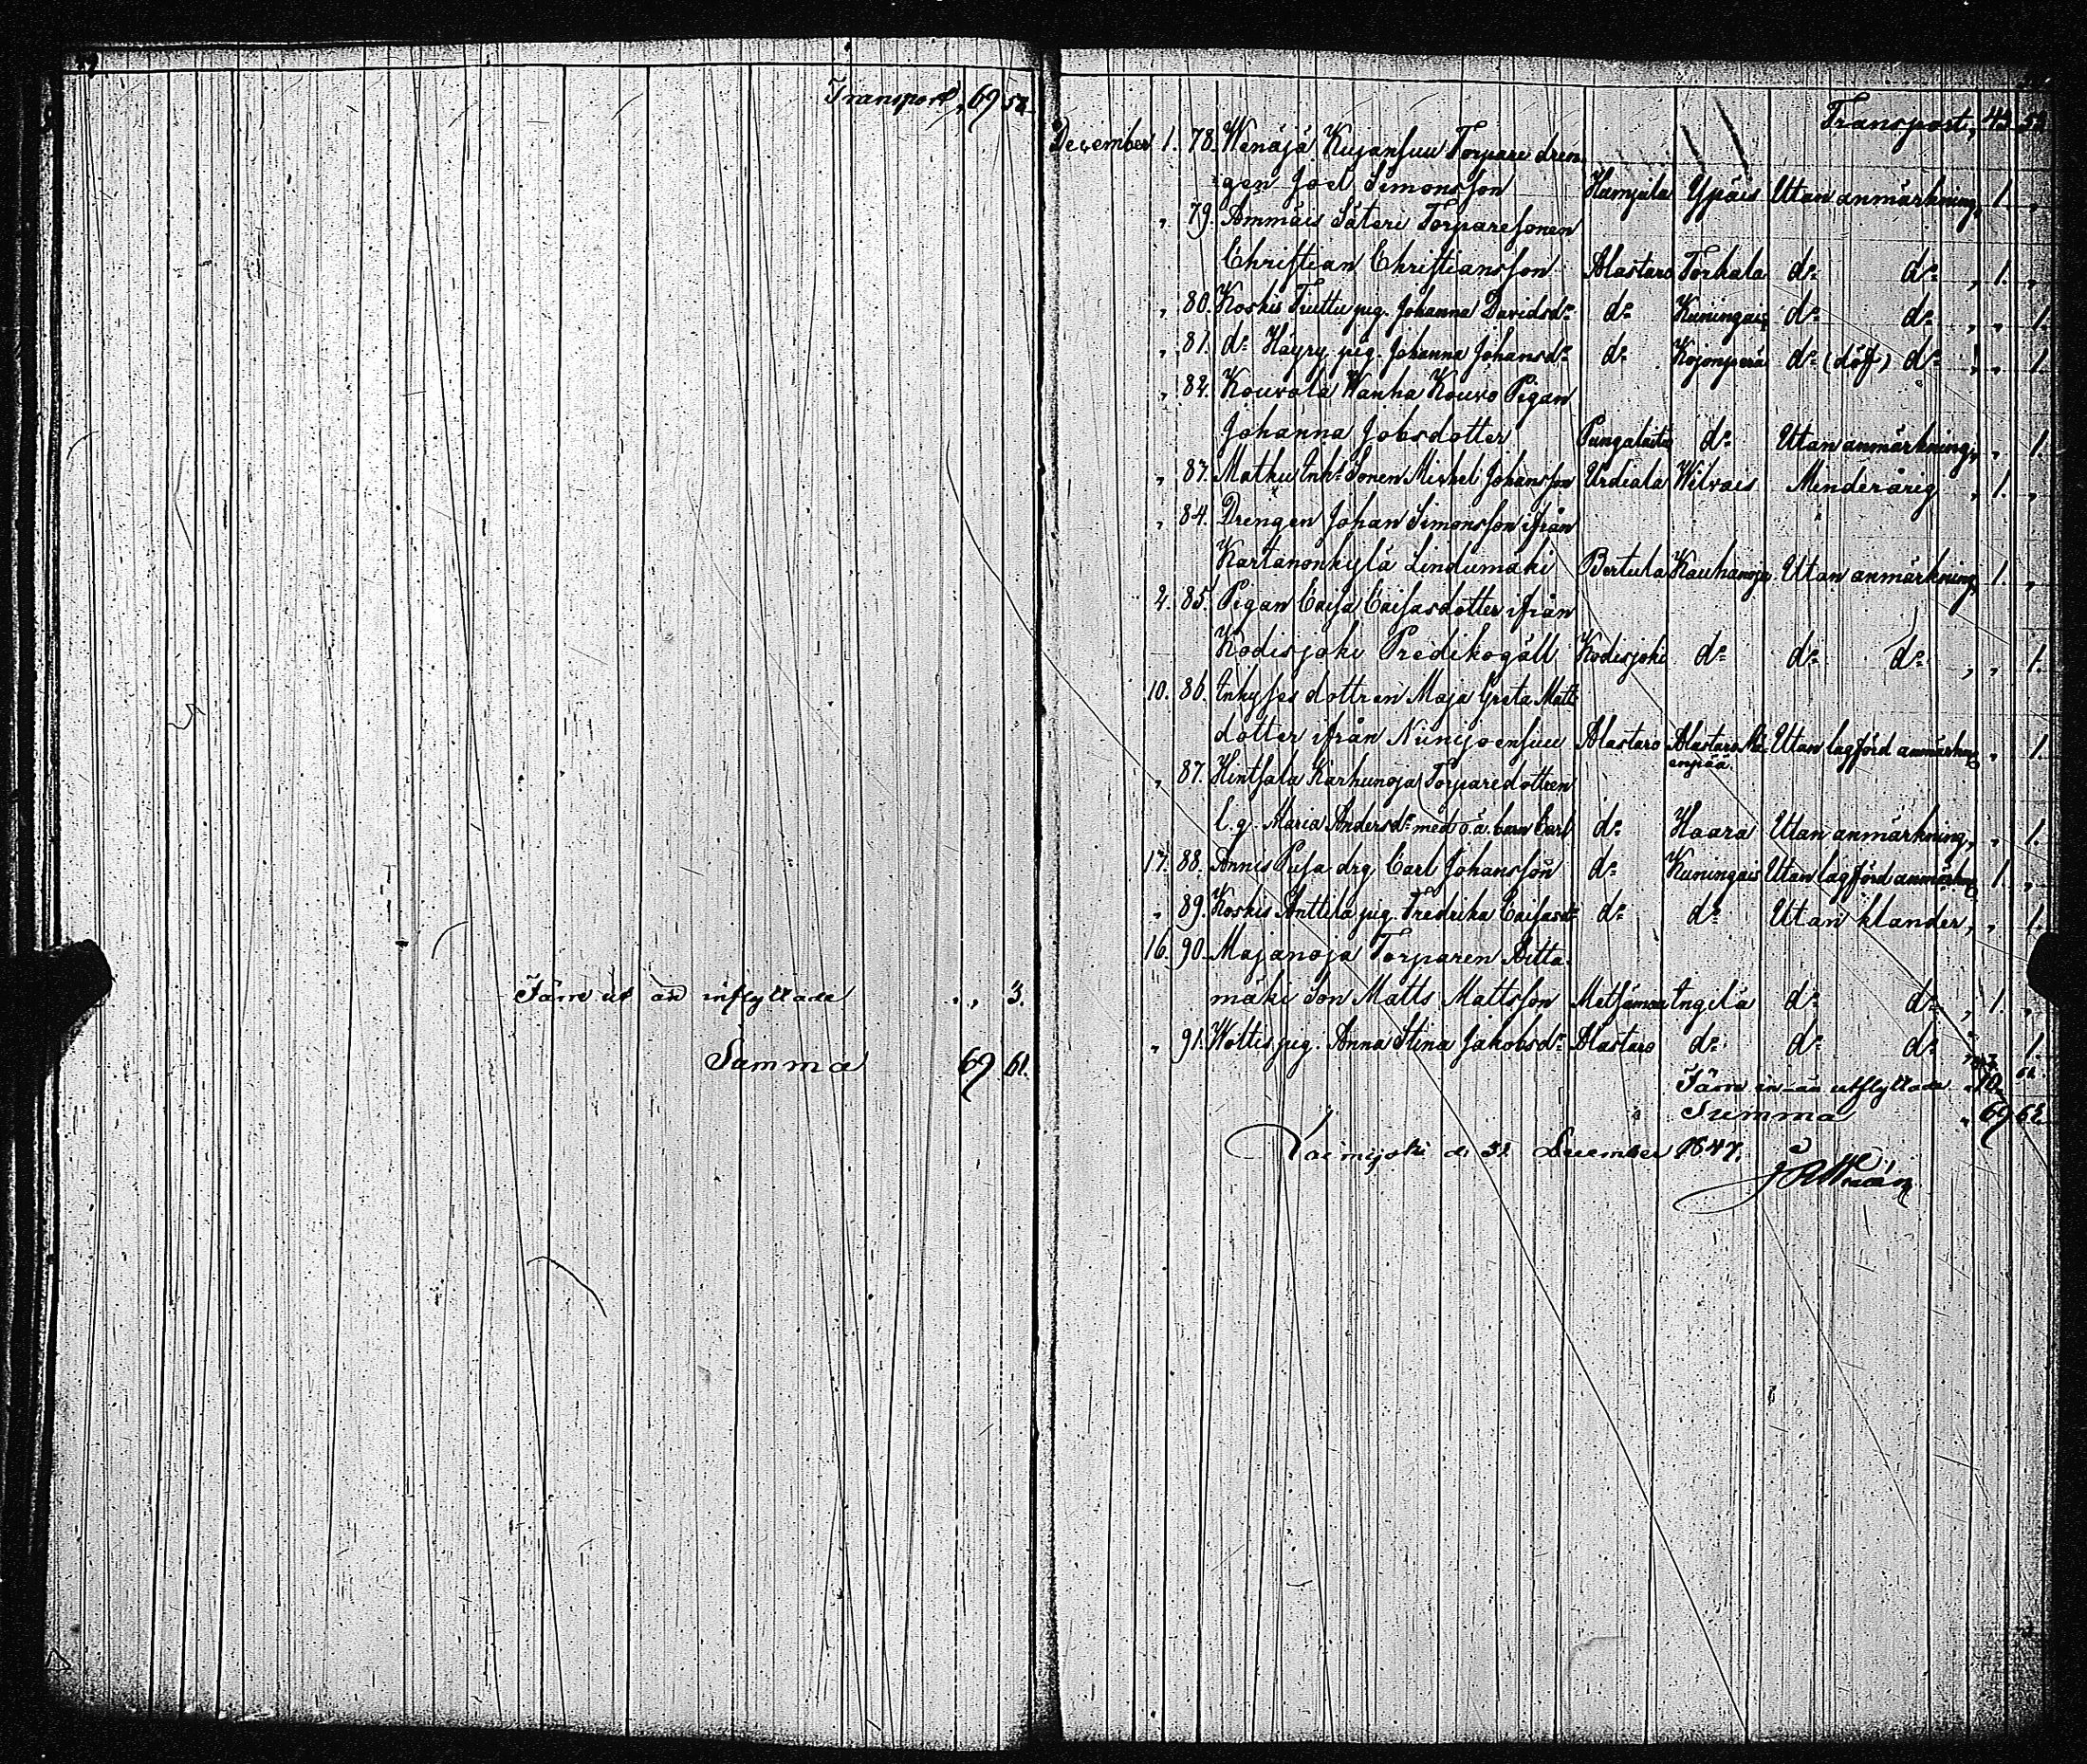 Transport, 69 58.
Färre ut än inflyttade „ 3.
Summa 69 61.
Transport, 43 52
December 1. 78. Wänäjä Kujansuu Torpare dren
gen Joel Simonsson Hamjala Ypäis Utan anmärkning, 1. „
„ 79. Ammäis Säteri Torparesonen
Christian Christiansson Alastaro Torkala do do „ 1. „
„ 80. Koskis Tuittu pig. Johanna Davidsdr do Kuningais do do „ „ 1.
„ 81. do Häyry pig. Johanna Johansdr do Kojonperä do (döf) do „ „ 1.
„ 82. Kouvola Wanha Kouvo Pigan
Johanna Jobsdotter Pungalaitio do Utan anmärkning, „ 1.
„ 83. Mathu Inhs Sonen Michel Johansson Urdiala Wilvais Minderårig „ 1. „
„ 84. Drengen Johan Simonsson ifrån
Kartanonkylä Lindumäki Bertula Kauhanoja Utan anmärkning, 1. „
2. 85. Pigan Caisa Caisasdotter ifrån
Kodisjoki Predikogäll Kodisjoki do do do „ „ 1.
10. 86. Inhyses dottren Maja Greta Matts
dotter ifrån Niinijoensuu Alastaro Alastaro Mä Utan lagförd anmärkng „ 1.
enpää
„ 87. Hintsala Karhunoja Torparedottren
l. q. Maria Andersdr med o. ä. barn Carl do Haara Utan anmärkning, „ 1.
17. 88. Annis Pusa drg Carl Johansson do Kuningais Utan lagförd anmärkng 1. „
„ 89. Koskis Anttila pig. Fredrika Caisasdr do do Utan klander, „ 1.
16. 90. Majanoja Torparen Aitta
mäki son Matts Mattsson Metsämaa Ingilä do do „ 1. „
„ 91. Wottis pig. Anna Stina Jakobsdr Alastaro do do do „ 1.
Färre in- än utflyttade
Summa „ 69 62
Loimijoki d. 31 December 1847.